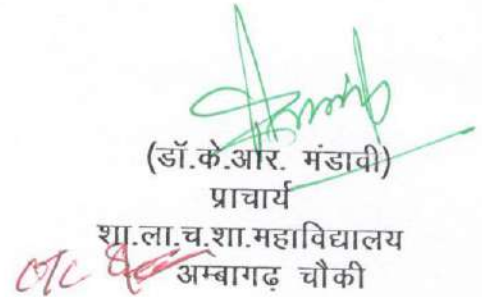 (डॉ.के.आर. मंडावी)
प्राचार्य
शा.ला.च.शा.महाविद्यालय
अम्बागढ़ चौकी